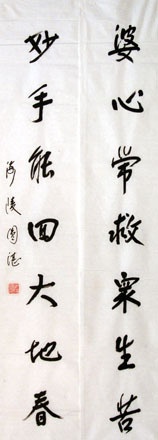 婆心常救眾生苦
妙手能回大地春
海陵周湛